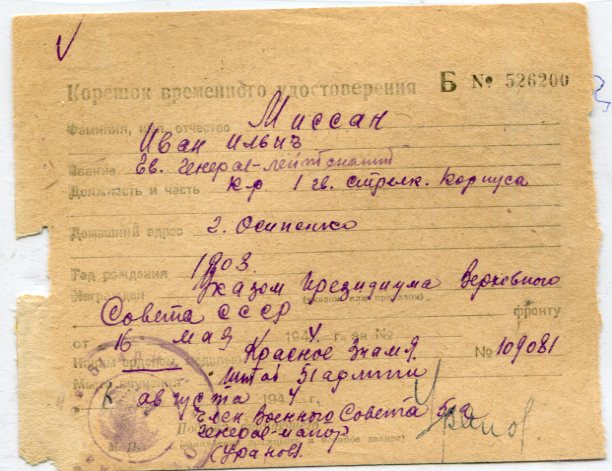 Корешок временного удостоверения Б № 526200
Миссан
Фамилия, имя, отчество
Иван Ильич
Звание Гв. Генерал-лейтенант
Должность и часть к-р. 1 гв. стрелк. корпуса
Домашний адрес г. Осипенко
Год рождения 1903.
Награжден Указом Президиума Верховного
(указом или приказом)
Совета СССР фронту
от 16 мая 194 4 г. за №
Красное Знамя № 109081
Место вручения штаб 51 армии
6 августа 194 4 г.
Член Военного Совета 51а
Генерал-майор
(Уранов)
Уранов
М. П.